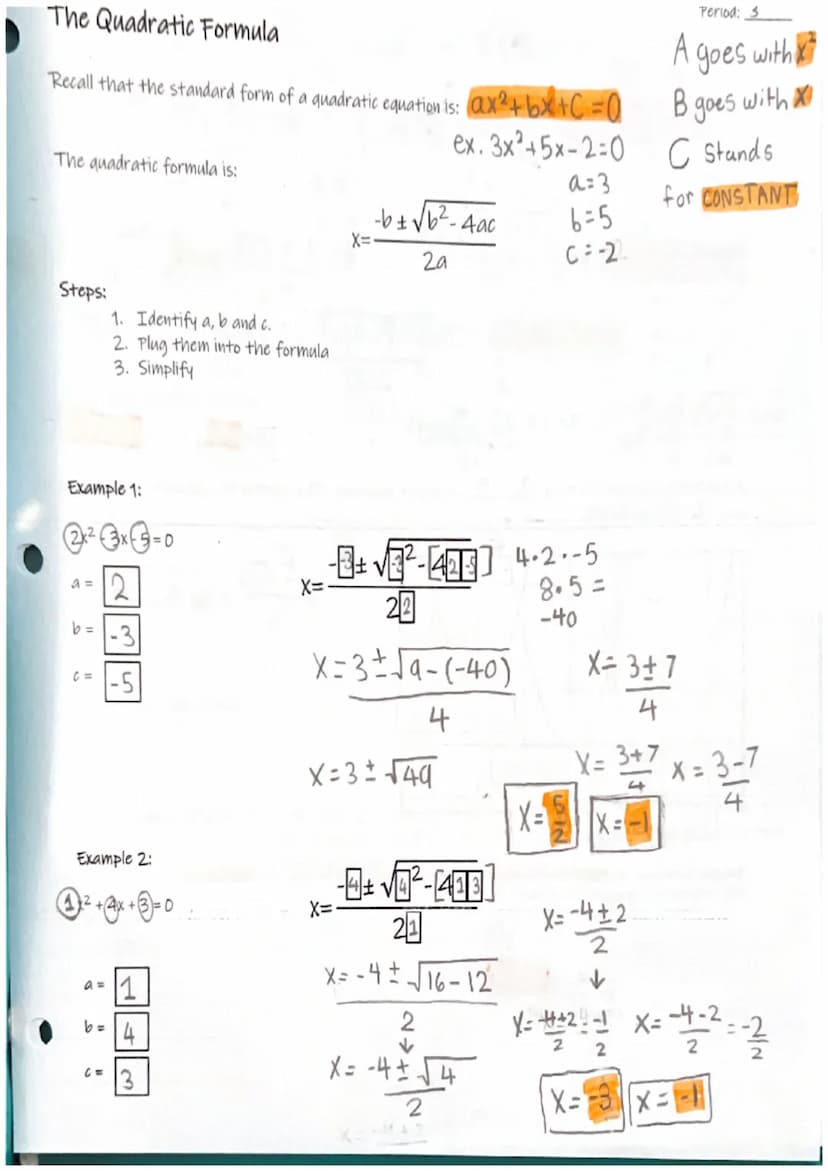 The Quadratic Formula
Period: 3
A goes with x²
B goes with x
C stands
for CONSTANT
Recall that the standard form of a quadratic equation is: ax²+bx+c=0
ex. 3x²+5x-2=0
a=3
b=5
c=-2
The quadratic formula is:
x= -b±√b²-4ac
2a
Steps:
1. Identify a, b and c.
2. Plug them into the formula
3. Simplify
Example 1:
2x²-3x-5=0
a = 2
b = -3
c = -5
x= --3±√-3²-[4 2 -5]
2 2
4·2·-5
8·5=
-40
x=3±√9-(-40)
4
x=3±√49
x= 3±7
4
x= 3+7
4
x= 3-7
4
x= 5
2
x=-1
Example 2:
1x²+4x+3=0
a = 1
b = 4
c = 3
x= -4±√4²-[4 1 3]
2 1
x=-4±√16-12
2
x= -4±√4
2
x= -4±2
2
x= -4+2 = -1
2 2
x= -4-2 = -2
2 2
x=-3
x=-1